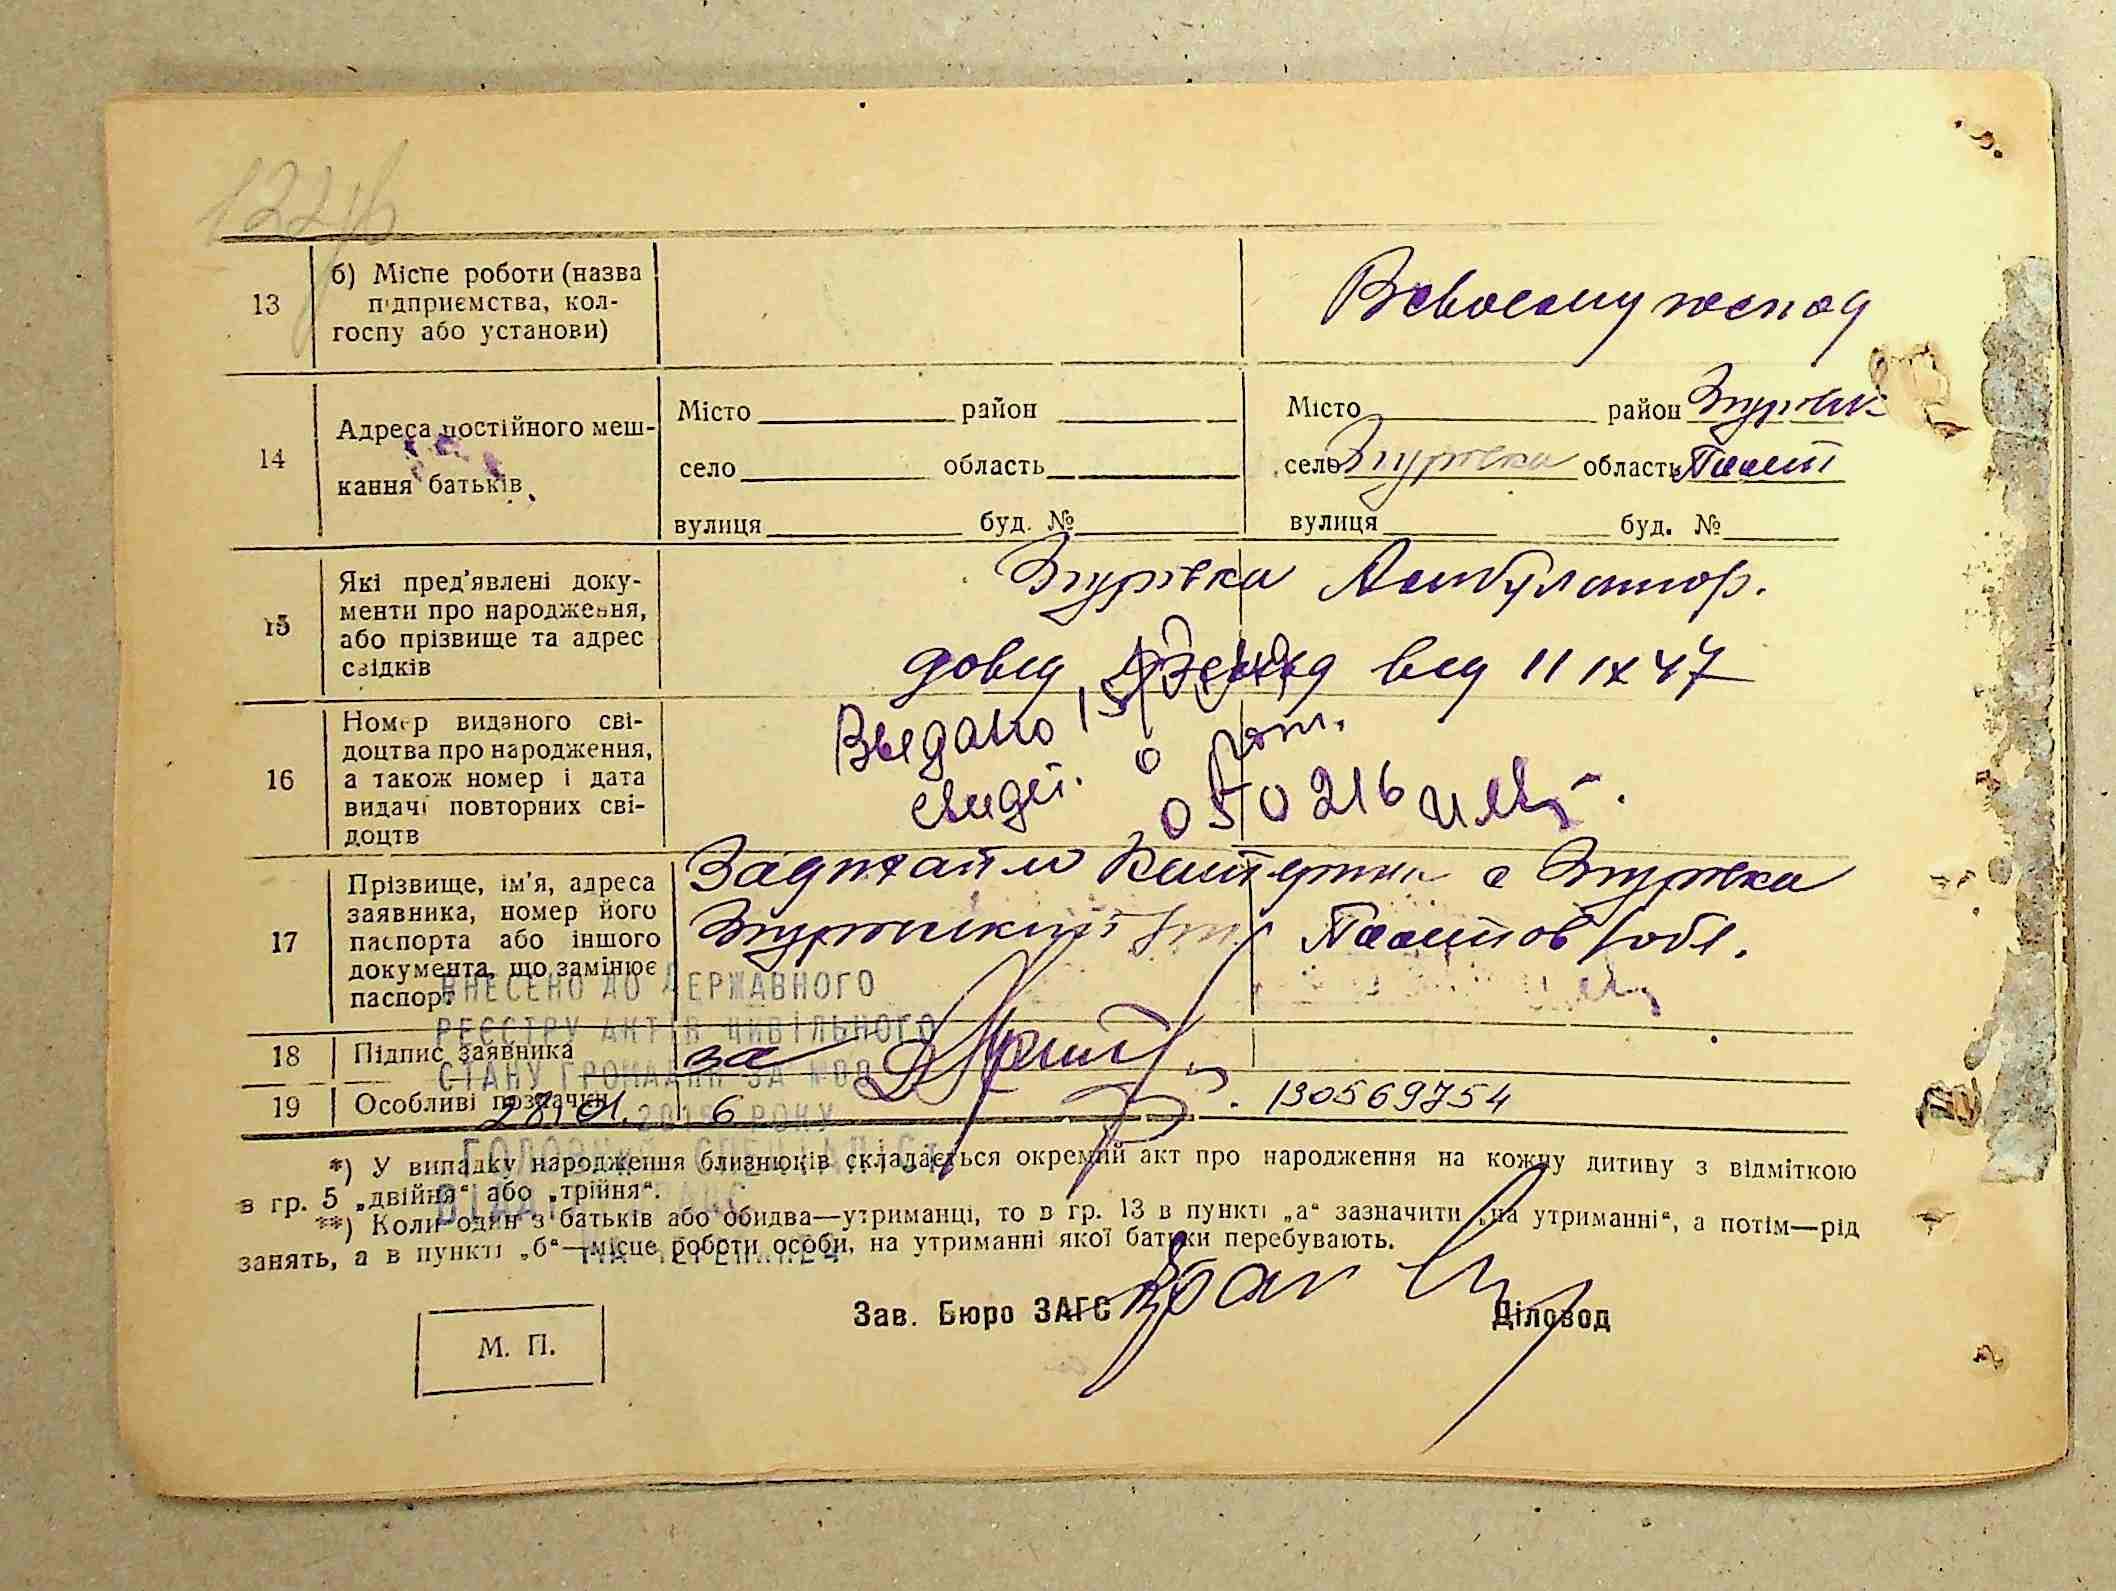 13
б) Місце роботи (назва
підприємства, кол-
госпу або установи)
14
Адреса постійного меш-
кання батьків
Місто район
село область
вулиця буд. №
Місто район Згурівк
село Згурівка область Полт
вулиця буд. №
15
Які пред'явлені доку-
менти про народження,
або прізвище та адрес
свідків
Згурівка Амбулатор.
довід від 11 IX 47
16
Номер виданого сві-
доцтва про народження,
а також номер і дата
видачі повторних сві-
доцтв
Выдано
свидет.
050216
17
Прізвище, ім'я, адреса
заявника, номер його
паспорта або іншого
документа, що замінює
паспорт
Задихайло с Згурівка
Згурівський Полтов обл.
ВНЕСЕНО ДО ДЕРЖАВНОГО
РЕЄСТРУ АКТІВ ЦИВІЛЬНОГО
СТАНУ ГРОМАДЯН ЗА №
18
Підпис заявника
за
19
Особливі позначки
28.01. 2015 РОКУ
6
130569754
ГОЛОВНИЙ СПЕЦІАЛІСТ
*) У випадку народження близнюків складається окремий акт про народження на кожну дитину з відміткою
в гр. 5 „двійня“ або „трійня“.
**) Коли один з батьків або обидва—утриманці, то в гр. 13 в пункті „а“ зазначити „на утриманні“, а потім—рід
занять, а в пункті „б“—місце роботи особи, на утриманні якої батьки перебувають.
Зав. Бюро ЗАГС Діловод
М. П.